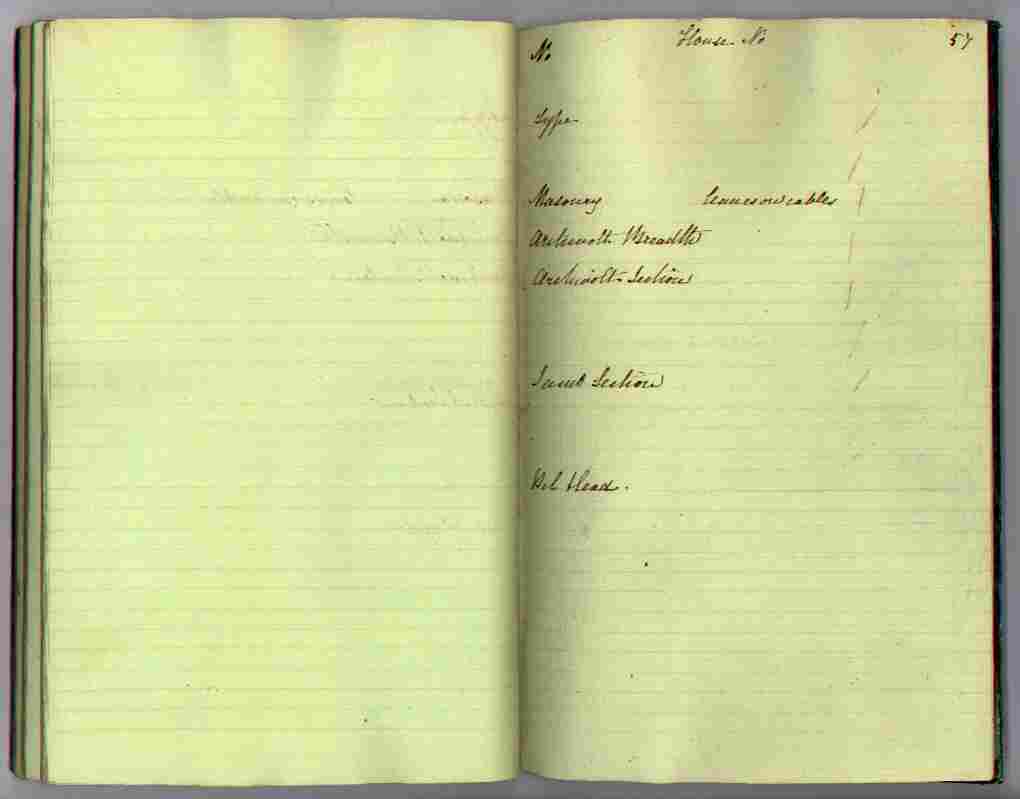 House No
57
No
Type
Masonry
Archivolt Breadth
Archivolt Section
Jamb Section
Bel Head.